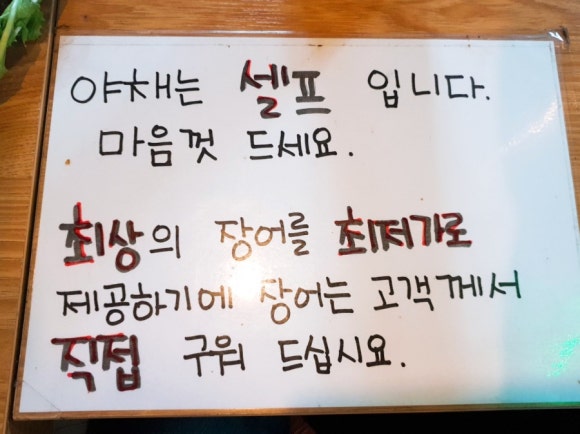 야채는 셀프 입니다.
마음껏 드세요.
최상의 장어를 최저가로
제공하기에 장어는 고객께서
직접 구워 드십시요.